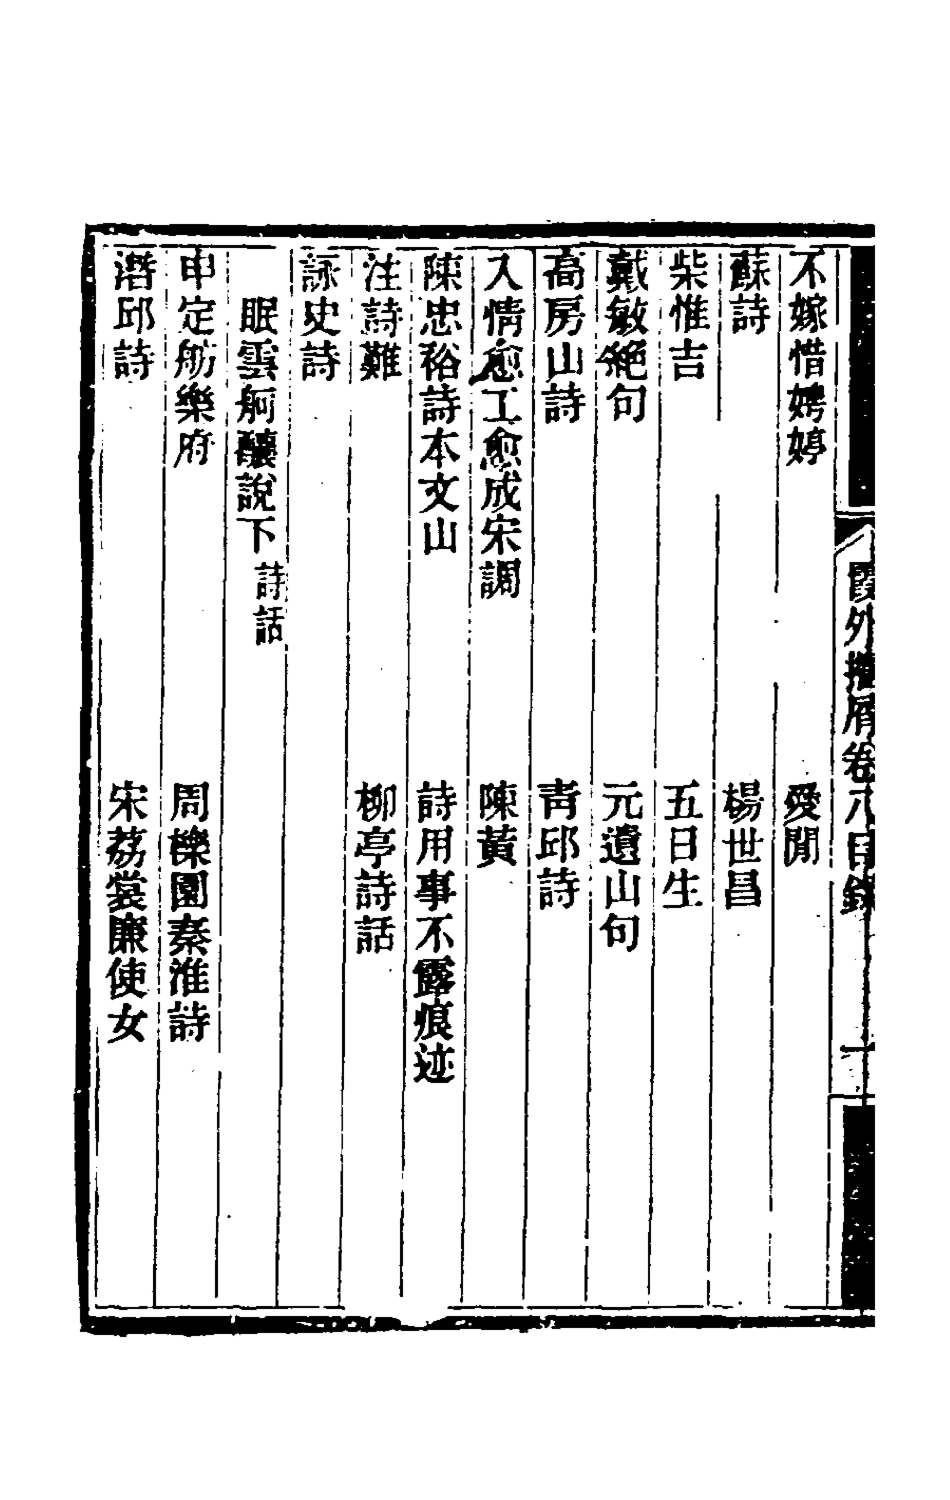 霞外攟屑卷八目錄 一
不嫁惜娉婷 愛閒
蘇詩 楊世昌
柴惟吉 五日生
戴敏絕句 元遺山句
高房山詩 青邱詩
入情愈工愈成宋調 陳黃
陳忠裕詩本文山 詩用事不露痕迹
注詩難 柳亭詩話
詠史詩
眠雲舸釀說下 詩話
申定舫樂府 周櫟園秦淮詩
潛邱詩 宋荔裳廉使女